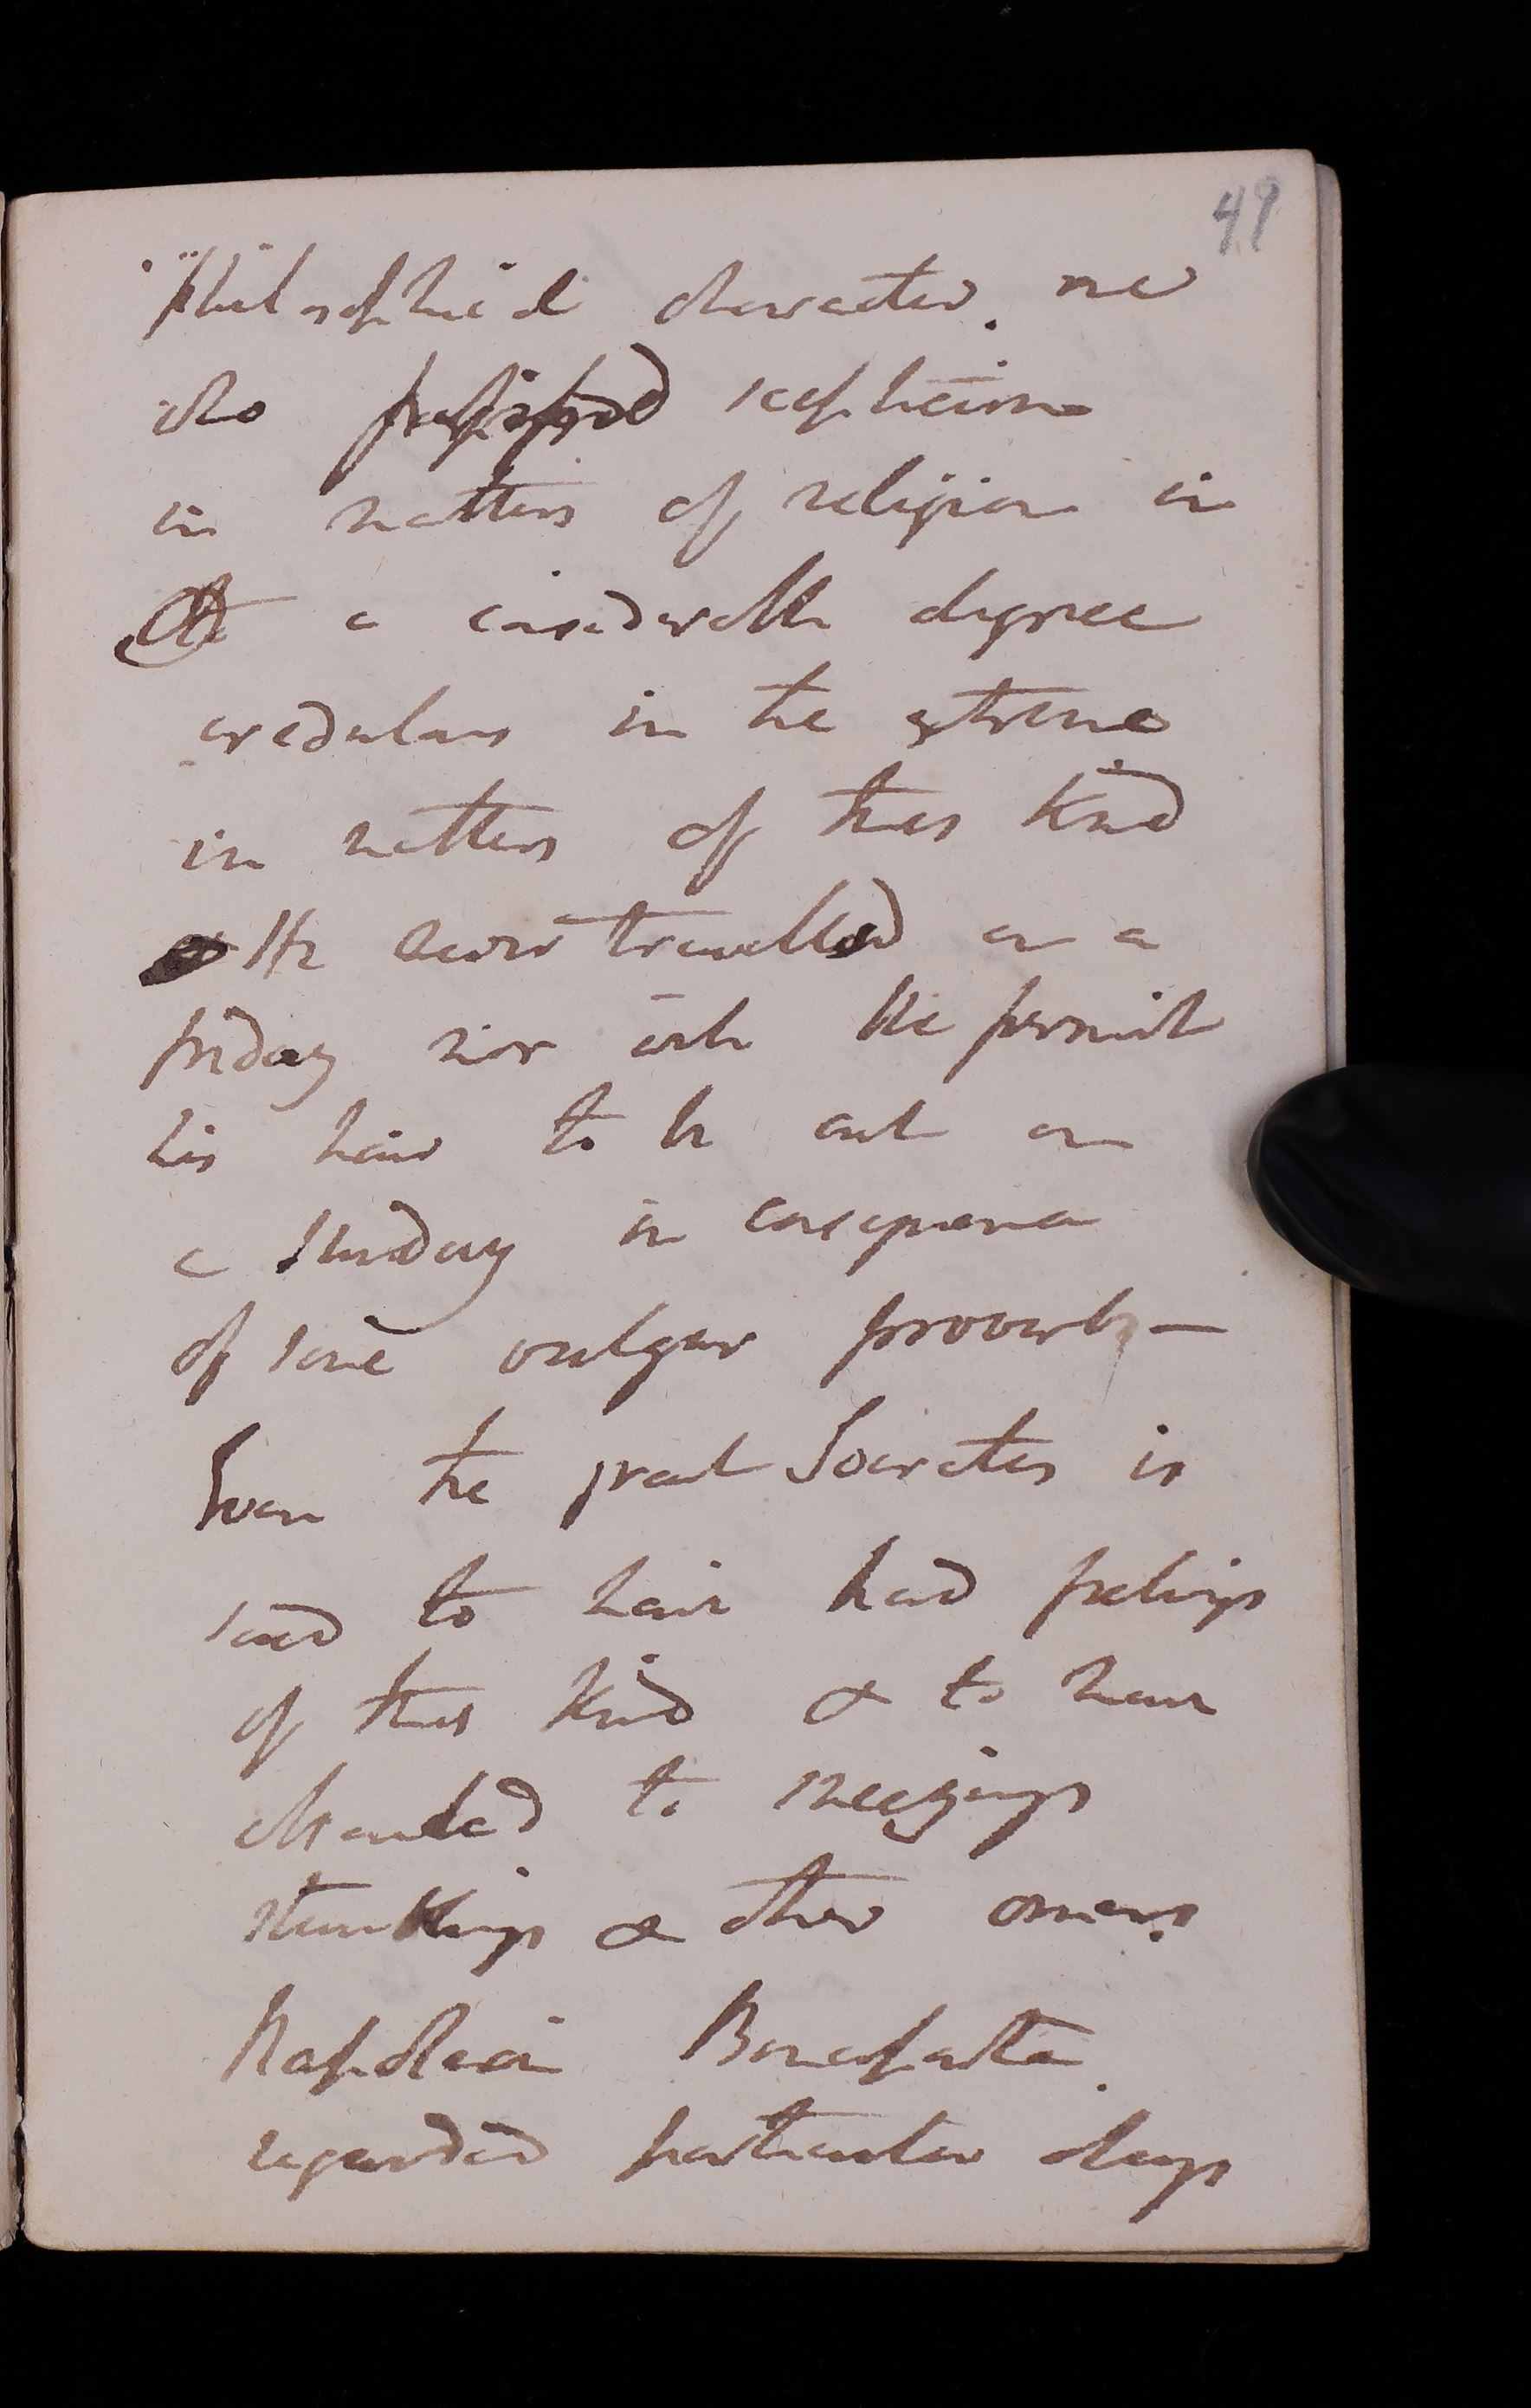 49
Philosophical character. one
who professed scepticism
in matters of religion in
a considerable degree
credulous in the extreme
in matters of this kind
He never travelled on a
friday nor wd he permit
his hair to be cut on
a Sunday in consequence
of some vulgar proverb —
Even the great Socrates is
said to have had feelings
of this kind & to have
attended to sneezings
stumblings & other omens.
Napoleon Bonaparte.
regarded particular days